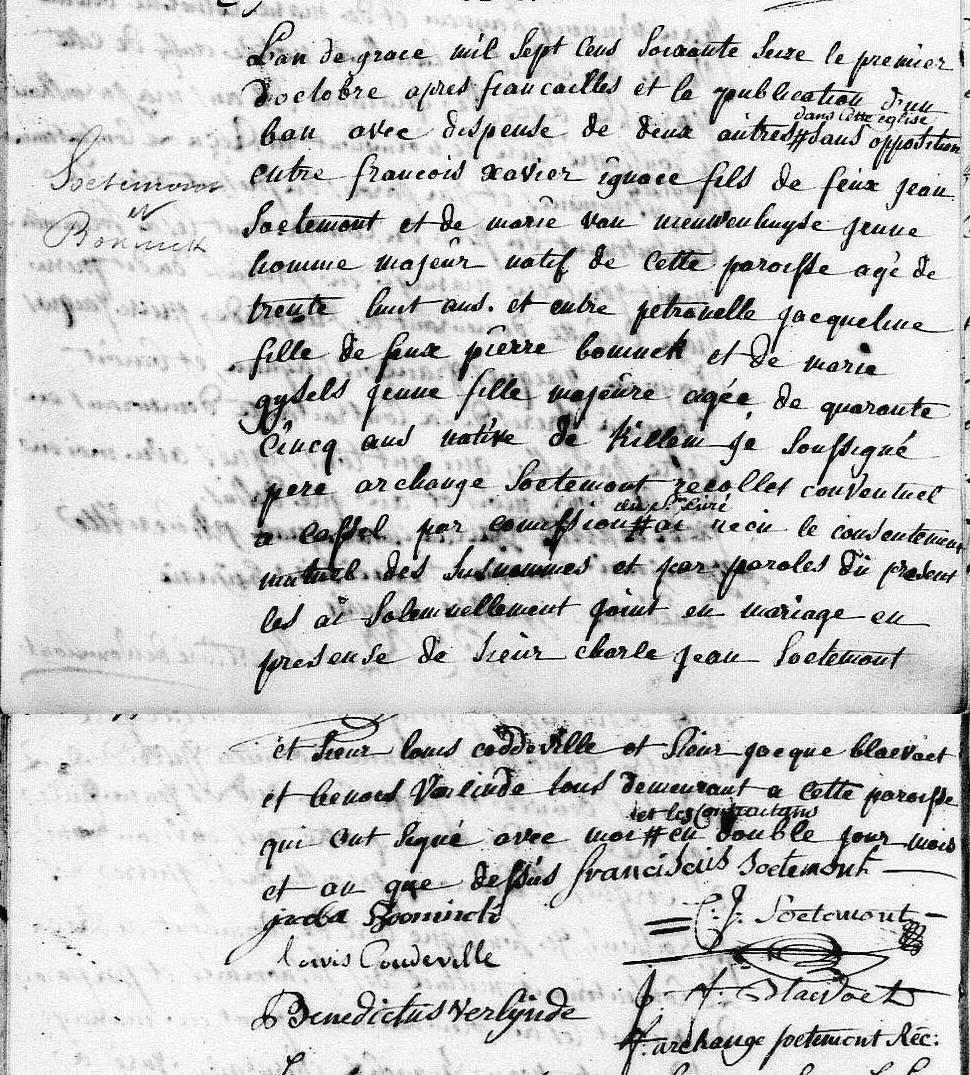 L'an de grace mil sept cens soixante seize le premier
d'octobre apres fiancailles et la publication d'un
dans cette eglise
ban avec dispense de deux autres # sans opposition
Soetemont
et
Bominck
entre francois xavier ignace fils de feux jean
Soetemont et de marie van nieuwenhuyse jeune
homme majeur natif de cette paroisse agé de
trente huit ans. et entre petronelle jacqueline
fille de feux pierre bominck et de marie
gysels jeune fille majeure agée de quarante
cincq ans native de killem je soussigné
pere archange Soetemont recollet conventuel
du sr curé
a cassel par comission # ai recu le consentement
mutuel des susnommes et par paroles du present
les ai solemnellement joint en mariage en
presense de sieur charle jean Soetemont
et sieur louis coddeville et sieur jacque blaevoet
et benoet Verlinde tous demeurant a cette paroisse
et les contractans
qui ont signé avec moi # en double jour mois
et an que dessus franciscus Soetemont
jacoba Boominck
C: J. Soetemont
Louis Coudeville
J. F. Blaevoet
Benedictus verlynde
f. archange soetemont Rec: